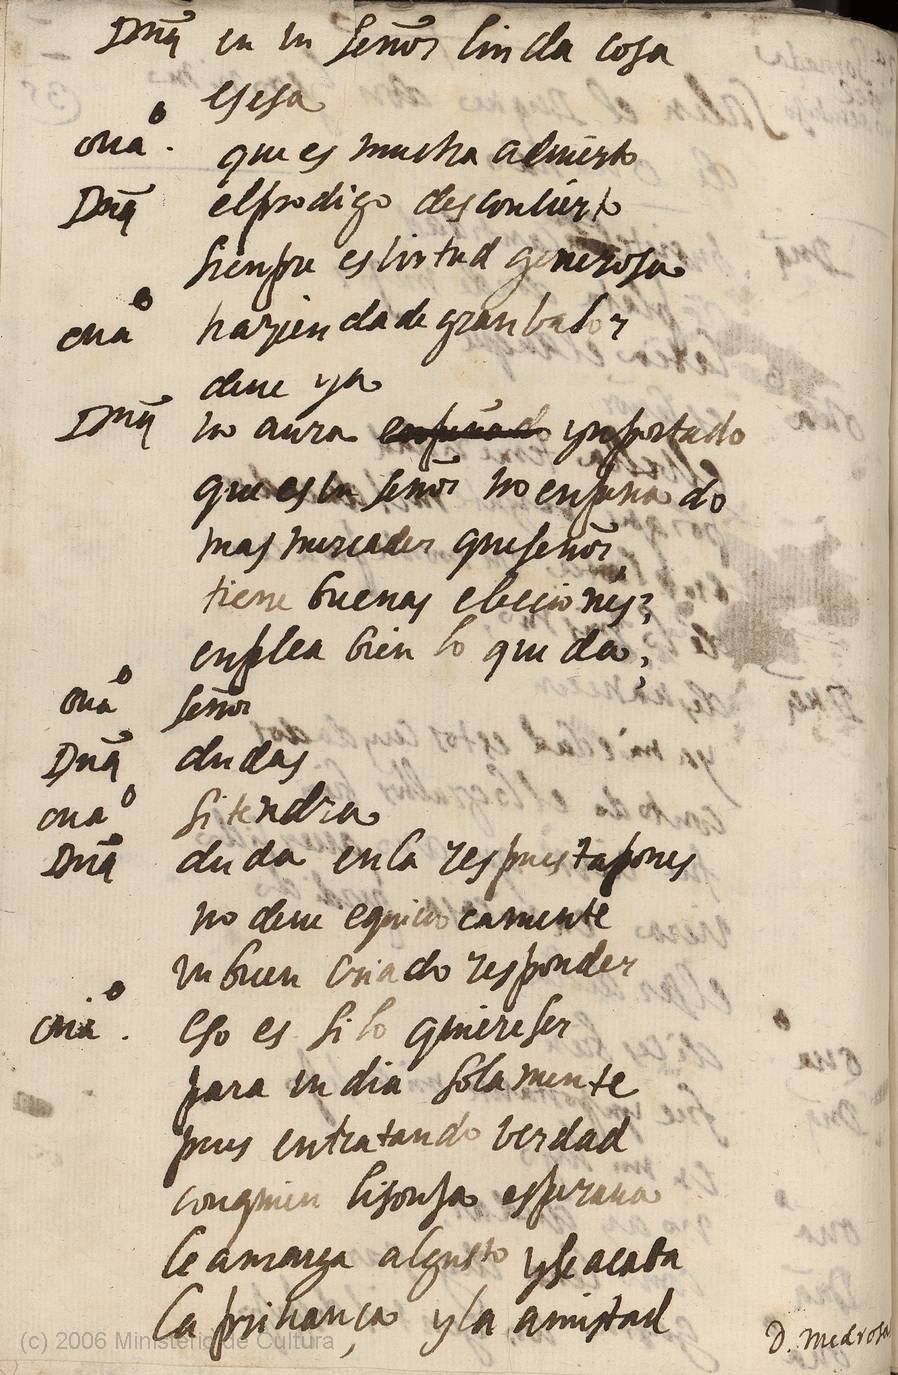 Duq̃ en un señor linda cosa
es esa
oua.º que es mucha aduierto
Duq̃ el prodigo desconcierto
sienpre es virtud generosa
ouaº hazienda de gran balor
deue ya
Duq̃ no aura ynportado
que esta señor no enpeñado
mas mercader que señor
tiene buenas eleciones?
enplea bien lo que da,
ouaº señor
Duq̃ dudas
ouaº si tendra
Duq̃ duda en la respuesta pones
no deue equiuocamente
un buen criado responder
ouaº. eso es si lo quiere ser
para un dia solamente
pues en tratando verdad
con quien lisonja esperaua
le amarga al gusto y se acaba
la priuança y la amistad
D. Medrosa
(c) 2006 Ministerio de Cultura